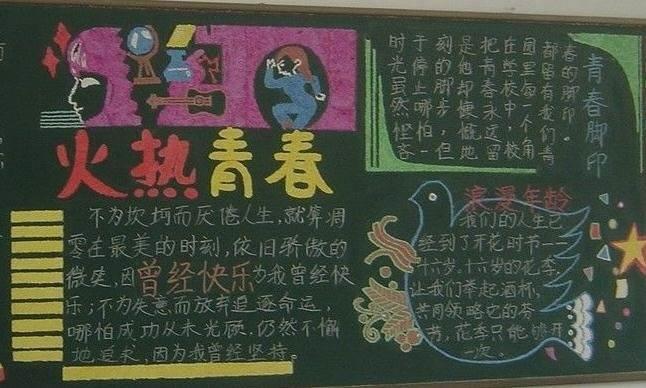 火热青春
不为坎坷而厌倦人生,就算凋
零在最美的时刻,依旧骄傲的
微笑,因曾经快乐为我曾经快
乐;不为失意而放弃追逐命运,
哪怕成功从未光顾.仍然不懈
地追求,因为我曾经坚持。
青春脚印
时光虽然悭吝
于停止哪怕一
刻的脚步,但
是他却慷慨地
把青春永远留
在学校中,校
园里每一个角
都留有我们青
春的脚印。
浪漫年龄
我们的人生已
经到了开花时节——
十六岁.十六岁的花季,
让我们举起酒杯,
共同领略它的芬
芳,花季只能够开
一次。